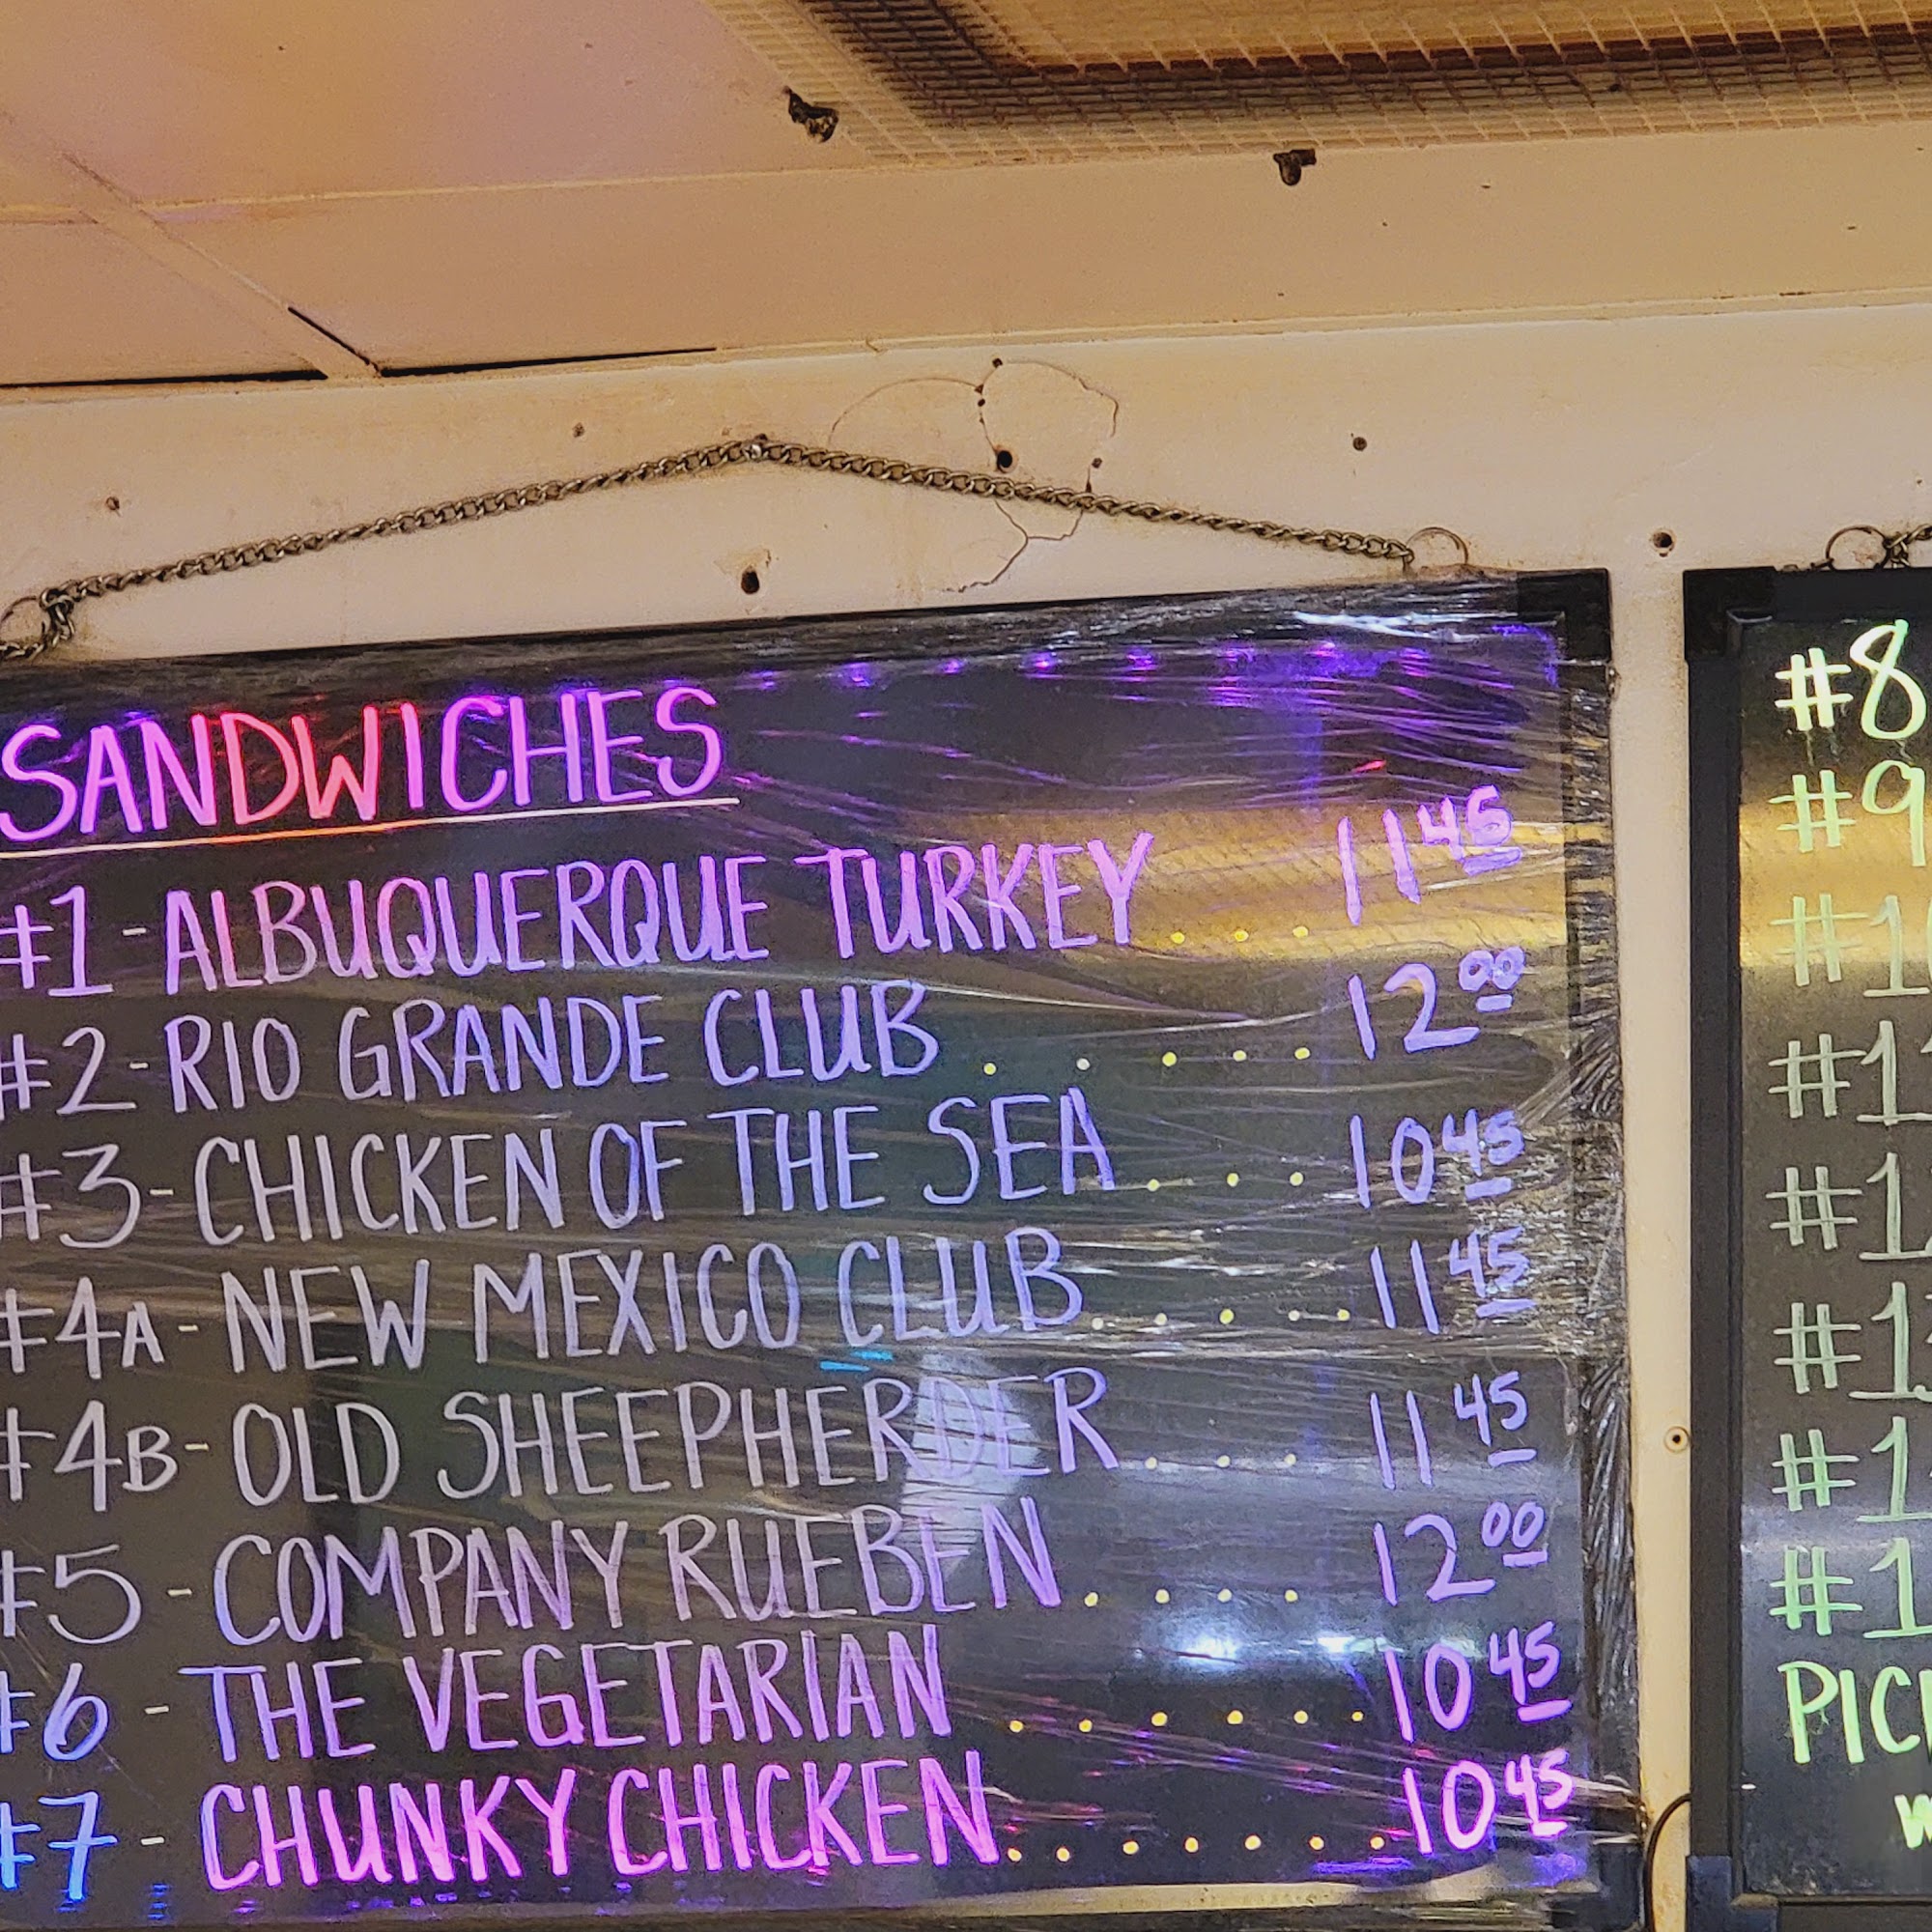 SANDWICHES
#1 - ALBUQUERQUE TURKEY . . . 11 45
#2 - RIO GRANDE CLUB . . . . . 12 00
#3 - CHICKEN OF THE SEA . . . 10 45
#4A - NEW MEXICO CLUB . . . . . 11 45
#4B - OLD SHEEPHERDER . . . 11 45
#5 - COMPANY RUEBEN . . . . 12 00
#6 - THE VEGETARIAN . . . . . . 10 45
#7 - CHUNKY CHICKEN . . . . . . . 10 45
#8
#9